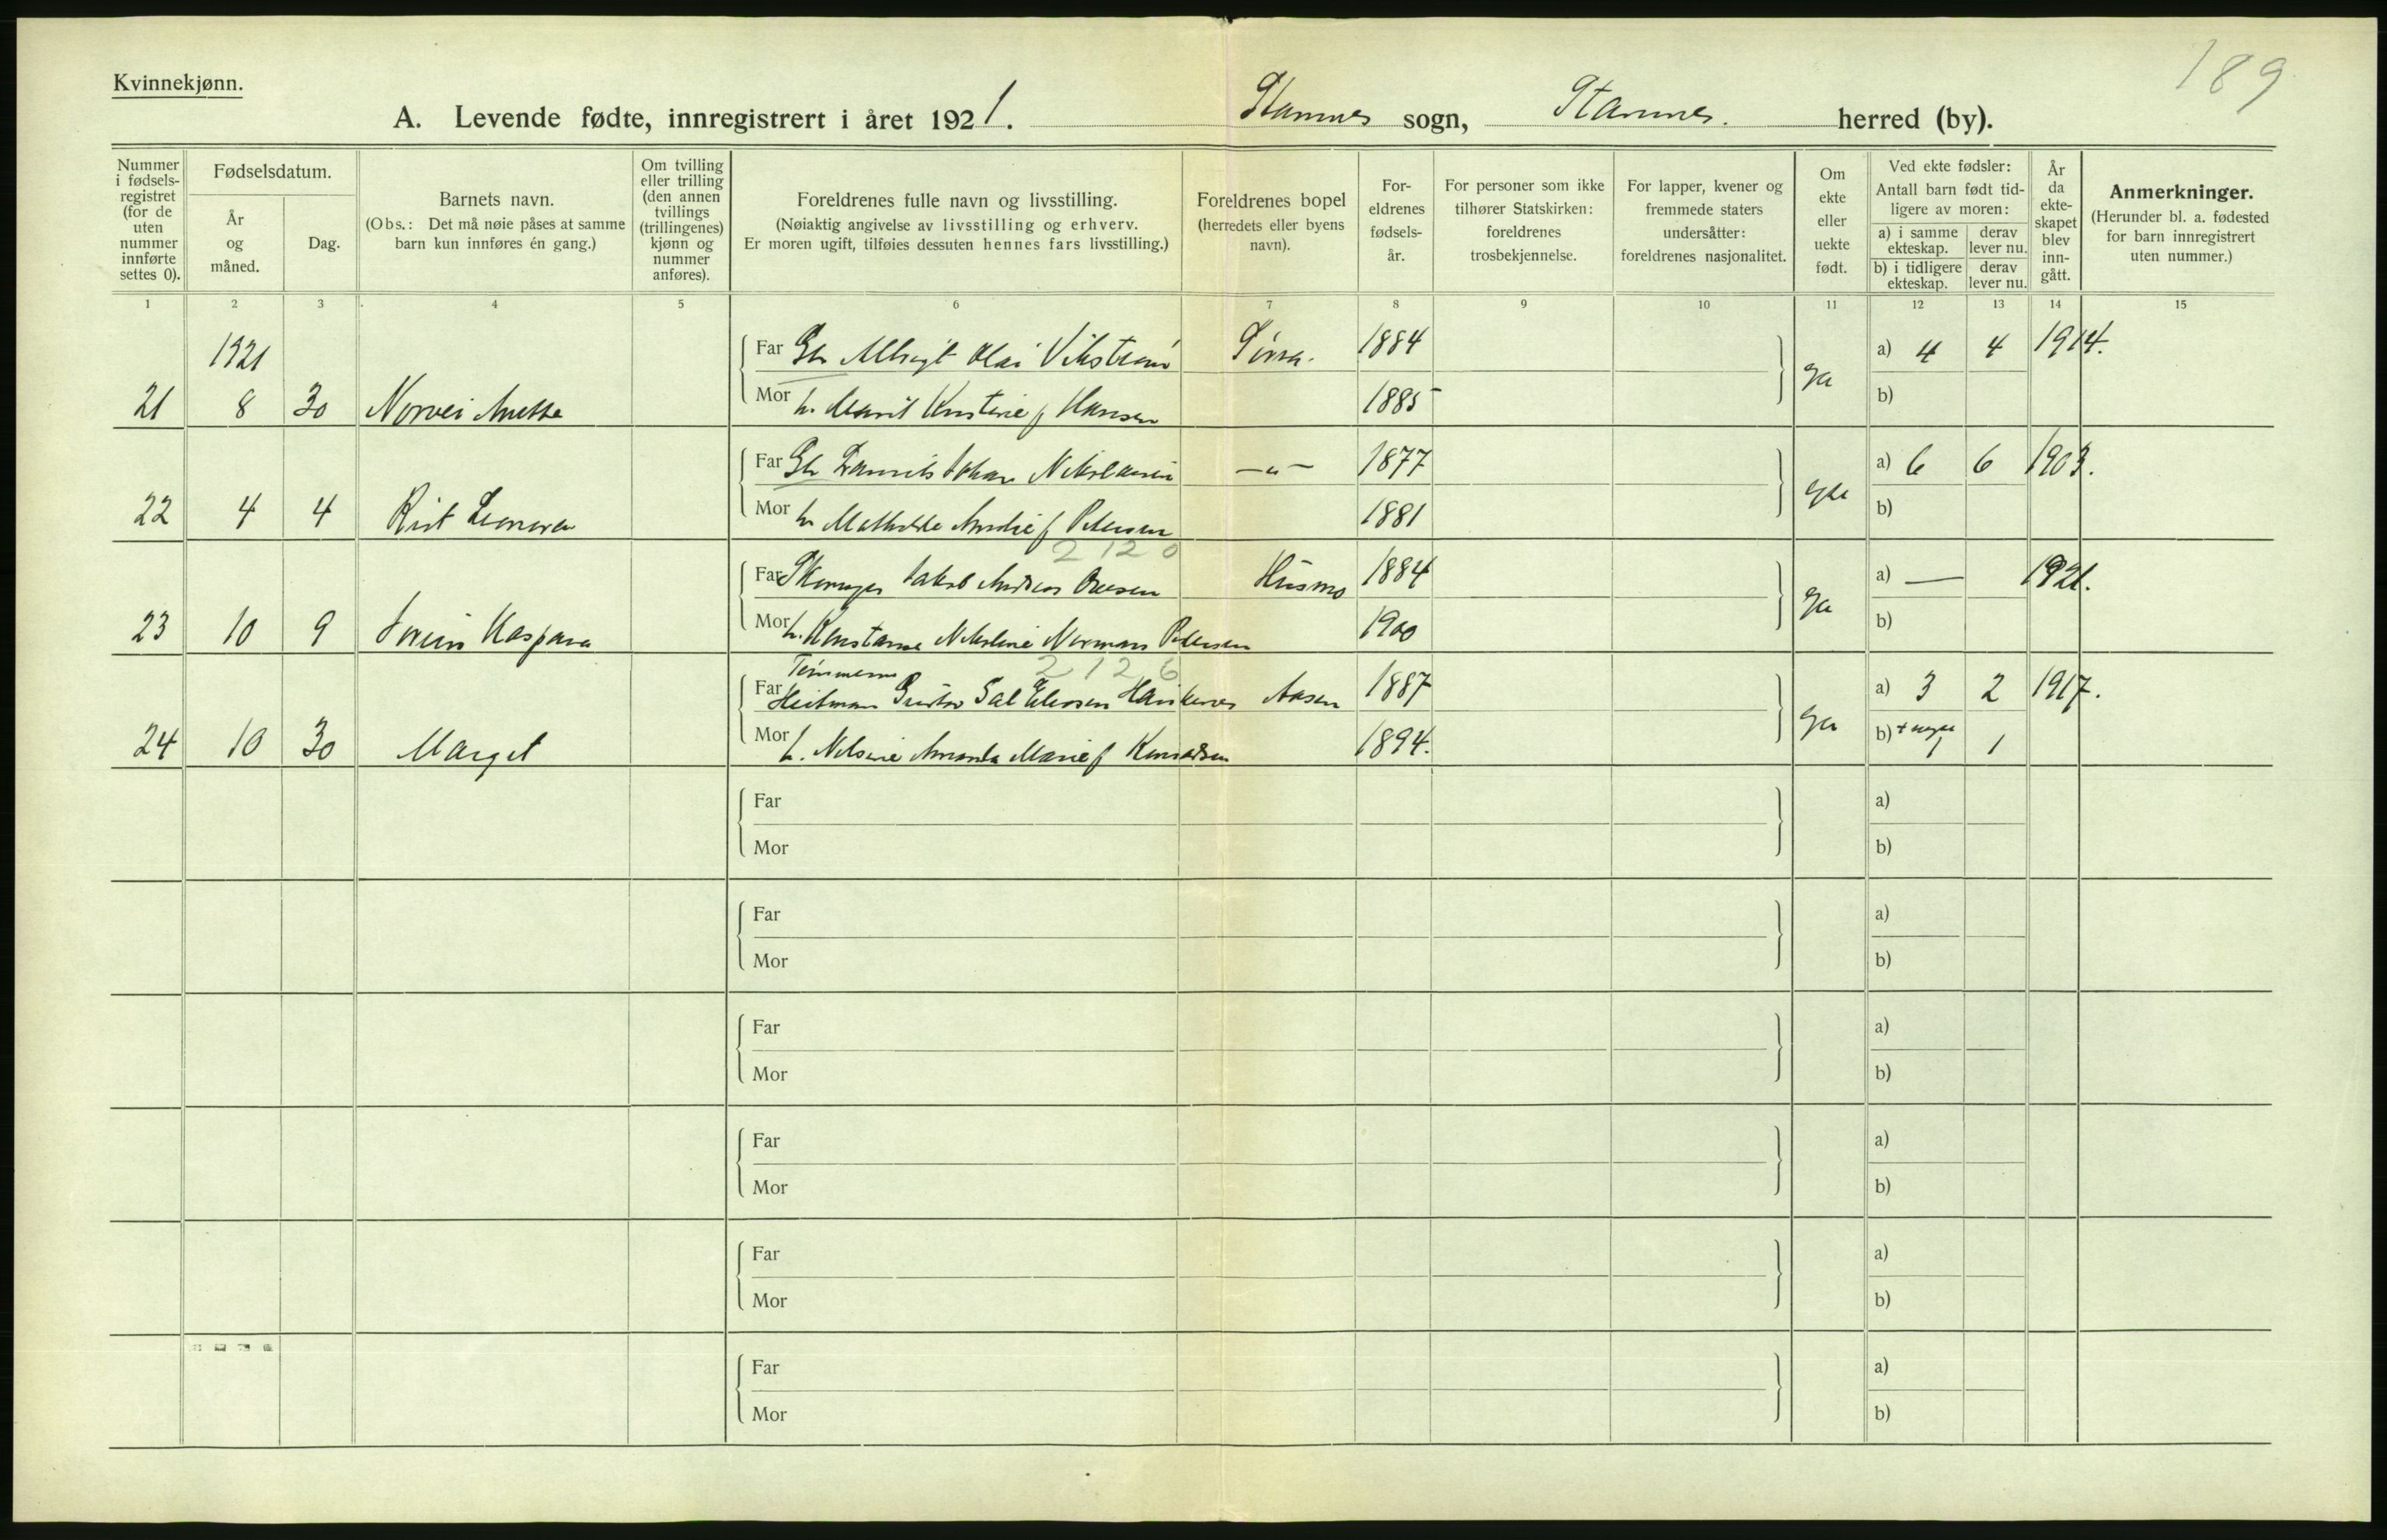 189
Kvinnekjønn.
A. Levende fødte, innregistrert i året 1921. Stamnes sogn, Stamnes. herred (by).
Nummer i fødselsregistret (for de uten nummer innførte settes 0).
Fødselsdatum.
År og måned.
Dag.
Barnets navn.
(Obs.: Det må nøie påses at samme barn kun innføres én gang.)
Om tvilling eller trilling (den annen tvillings (trillingenes) kjønn og nummer anføres).
Foreldrenes fulle navn og livsstilling.
(Nøiaktig angivelse av livsstilling og erhverv.
Er moren ugift, tilføies dessuten hennes fars livsstilling.)
Foreldrenes bopel
(herredets eller byens navn).
Foreldrenes fødselsår.
For personer som ikke tilhører Statskirken: foreldrenes trosbekjennelse.
For lapper, kvener og fremmede staters undersåtter: foreldrenes nasjonalitet.
Om ekte eller uekte født.
Ved ekte fødsler:
Antall barn født tidligere av moren:
a) i samme ekteskap. derav lever nu.
b) i tidligere ekteskap. derav lever nu.
År da ekteskapet blev inngått.
Anmerkninger.
(Herunder bl. a. fødested for barn innregistrert uten nummer.)
1 2 3 4 5 6 7 8 9 10 11 12 13 14 15
1921
Far Olai Vikstrøm 1884 a) 4 4 1914.
21 8 30 Norvei Anette Mor h. Marit Kristine f Hansen 1885 b)
Far Johan Nikolaisen —"— 1877 a) 6 6 1903.
22 4 4 Mor h. Mathilde f Petersen 1881 b)
2120
Far Jakob Andreas Olsen Husmo 1884 a) — 1921.
23 10 9 Kaspara Mor h. Konstanse Nikoline Normans Pedersen 1900 b)
2126
Far Heitman Gustav Aasen 1887 a) 3 2 1917.
24 10 30 Marget Mor h. Nilsine Amanda Marie f Konradsen 1894. b) 1 1
Far a)
Mor b)
Far a)
Mor b)
Far a)
Mor b)
Far a)
Mor b)
Far a)
Mor b)
Far a)
Mor b)